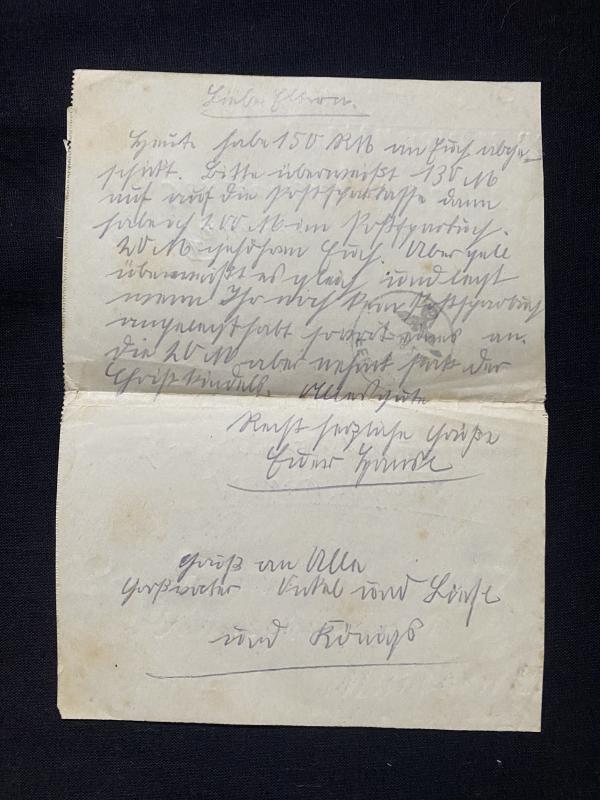 Liebe Eltern.
Heute habe 150 RM an Euch abge-
schickt. Bitte überweißt 130 M
auf die Postsparkasse dann
habe ich 200 M im Postsparbuch.
20 M gehören Euch. Aber gell
überweißt es gleich und legt
wenn Ihr noch kein Postsparbuch
angelegt habt sofort eines an.
Die 20 M aber nehmt statt der
Christkindels. Alles Gute
Recht herzliche Grüße
Euer Hansl
Gruß an Alle
Großvater Onkel und Liesl
und Königs